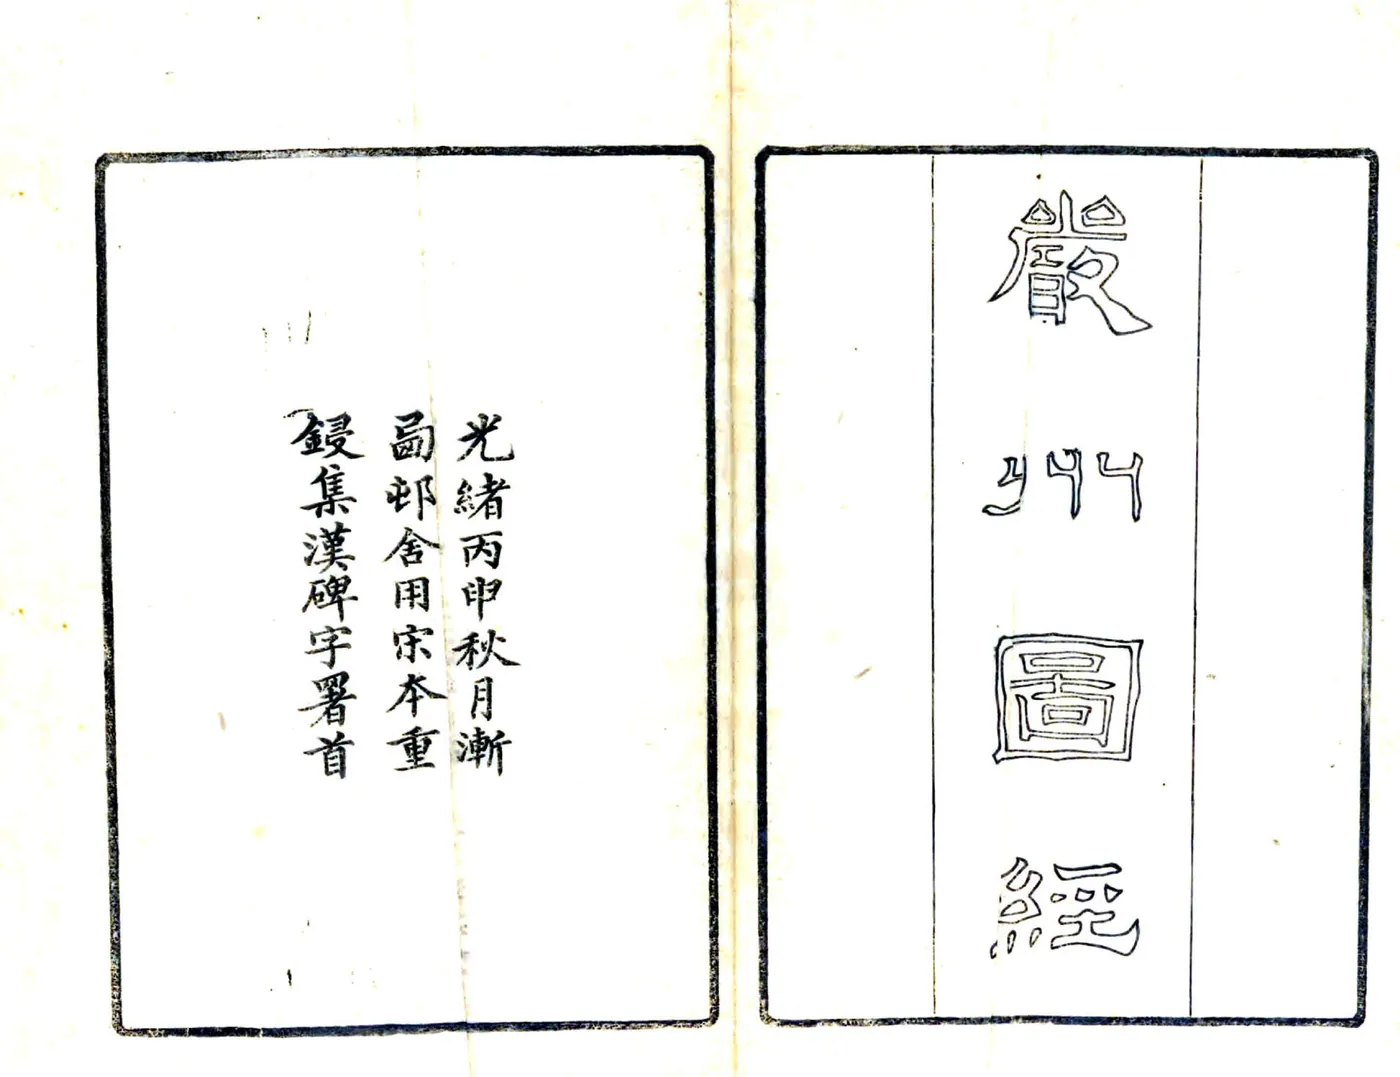 嚴州圖經
光緒丙申秋月漸
㽞邨舍用宋本重
鋟集漢碑字署首